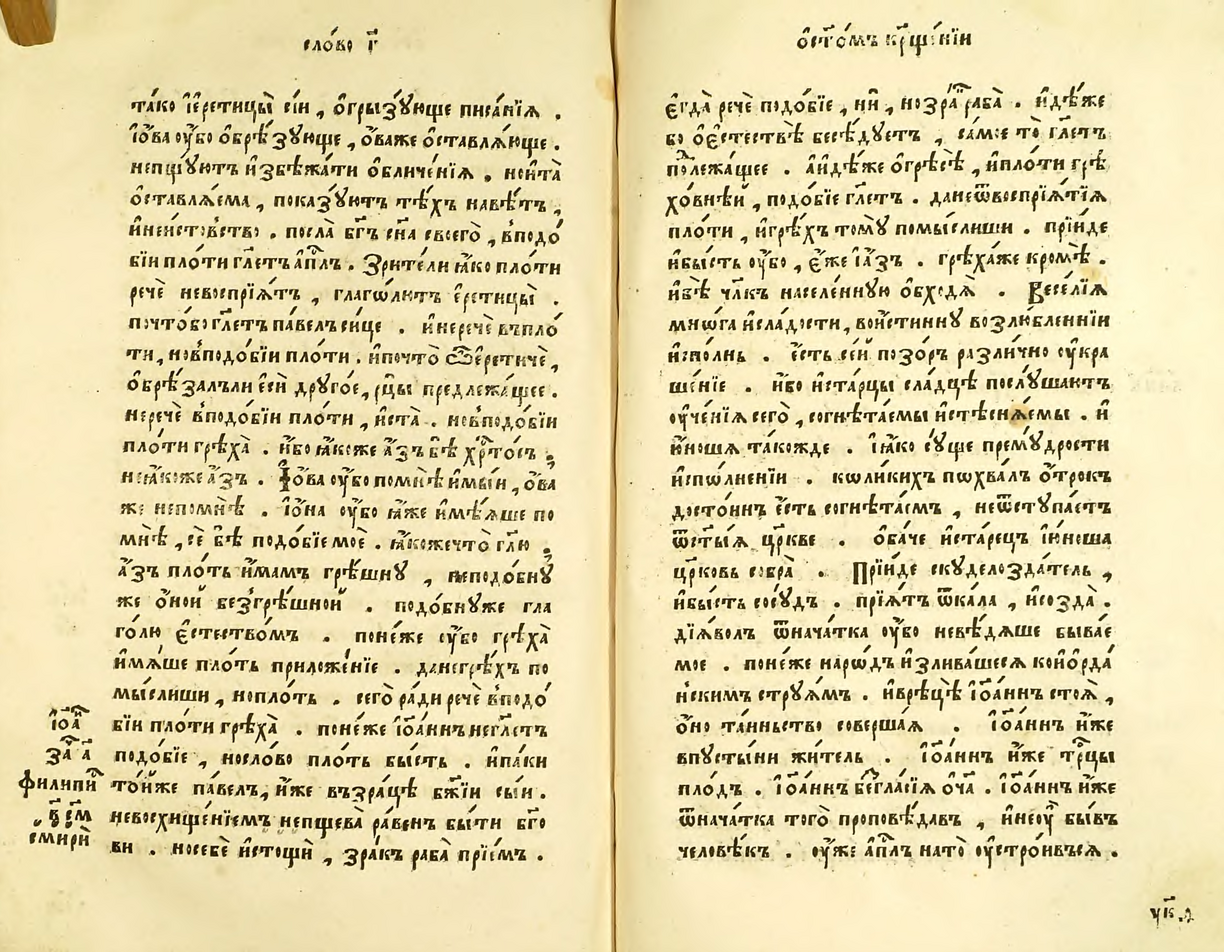 сло́во г҃
та́ко і҆єретицы̀ сїи , ѡ҆грызꙋ́юще писа́нїѧ .
і҆ѻ҆́ва оу҆́бо ѻ҆брѣ́зꙋюще , ѻ҆́важе ѻ҆ставлѧ́юще .
непщꙋ́ютъ и҆збѣжа́ти ѻ҆бличе́нїѧ . нои҆та̀
ѻ҆ставлѧ́ема , пока́зꙋютъ тѣ́хъ навѣ́тъ ,
и҆неи́стовство . посла̀ бг҃ъ сн҃а своего̀ , вподо́
бїи пло́ти гл҃етъ а҆пⷭ҇лъ . Зри́тели ꙗ҆́ко пло́ти
речѐ невоспрїѧ́тъ , глаго́лютъ є҆ретицы̀ .
почто́бо гл҃етъ па́велъ си́це . и҆неречѐ въпло́
ти , новподо́бїи пло́ти . и҆почто̀ ѽеретичѐ ,
ѻ҆брѣ́залъли є҆сѝ дрꙋго́е , рцы̀ предлежа́щее .
неречѐ вподо́бїи пло́ти , и҆ста̀ . новподо́бїи
пло́ти грѣха̀ . и҆́бо ꙗ҆́коже а҆́зъ бѣ̀ хрⷭ҇то́съ ,
неꙗ҆́коже а҆́зъ . І҆ѻ҆́ва оу҆́бо помнѣ̀ и҆мы́и , ѻ҆́ва
же непомнѣ̀ . і҆ѻ҆́на оу҆́бо ꙗ҆́же и҆мѣ́ѧше по
мнѣ̀ , сѐ бѣ̀ подо́бїе моѐ . ꙗ҆́кожечто̀ гл҃ю ,
а҆́зъ пло́ть и҆́мамъ грѣ́шнꙋ , неподо́бнꙋ
же ѻ҆́ной безгрѣ́шной . подо́бнꙋже гла
го́лю є҆стество́мъ . поне́же оу҆́бо грѣха̀
и҆мѧ́ше пло́ть приложе́нїе . данегрѣ́хъ по
мы́слиши , нопло́ть . сего̀ ра́ди речѐ вподо́
бїи пло́ти грѣха̀ . поне́же і҆ѻ҆а́ннъ негл҃етъ
подо́бїе , носло́во пло́ть бы́сть . и҆па́ки
то́йже па́велъ , и҆́же въ зра́цѣ бж҃їи сы́и .
невосхище́нїемъ непщева̀ ра́венъ бы́ти бг҃о
ви . носебѐ и҆стощѝ , зра́къ раба̀ прїе́мъ .
і҆ѻ҆а
за а҃
филипи
смири
ѻ҆ ст҃о́мъ крⷳ҇ще́нїи
є҆гда̀ речѐ подо́бїе , нѝ , но зра раба̀ . и҆дѣ́же
бо ѻ҆ є҆стествѣ̀ бесѣ́дꙋетъ , са́мое то̀ гл҃етъ
полежа́щее . а҆идѣ́же ѻ҆ грѣсѣ̀ , и҆пло́ти грѣ
хо́внѣй , подо́бїе гл҃етъ . дане ѿвоспрїѧ́тїѧ
пло́ти , и҆грѣ́хъ томꙋ̀ помы́слиши . прїи́де
и҆бы́сть оу҆́бо , є҆́же і҆а҆́зъ . грѣха́же кромѣ̀ .
и҆бѣ̀ чл҃къ населе́ннꙋю ѻ҆бходѧ̀ . Весе́лїѧ
мнѡ́га и҆сла́дости , вои́стиннꙋ возлю́бленнїи
и҆спо́лнь . є҆́сть се́й позо́ръ разли́чно оу҆кра
ше́нїе . и҆́бо и҆ста́рцы сла́дцѣ послꙋ́шаютъ
оу҆че́нїѧ сего̀ , согнѣта́емы и҆стѣснѧ́емы . и҆
ю҆́ношѧ тако́жде . і҆ꙗ҆́ко сꙋ́ще премꙋ́дрости
и҆спо́лненїи . коли́кихъ похва́лъ ѻ҆́трокъ
досто́инъ є҆́сть согнѣта́емъ , не ѿстꙋпа́етъ
ѿ ст҃ы́ѧ цр҃кве . ѻ҆ба́че и҆ста́рецъ і҆ю҆́ноша
цр҃ковь собра̀ . Прїи́де скꙋделозда́тель ,
и҆бы́сть сосꙋ́дъ . прїѧ́тъ ѿ ка́ла , и҆созда̀ .
дїѧ́волъ ѿнача́тка оу҆́бо невѣ́дѧше быва́е
мое . поне́же наро́дъ и҆злива́шесѧ ко і҆ѻ҆рда́
нскимъ стрꙋѧ́мъ . и҆врѣцѣ̀ і҆ѻ҆а́ннъ стоѧ̀ ,
ѻ҆́но та́иньство соверша́ѧ . і҆ѻ҆а́ннъ и҆́же
впꙋсты́ни жи́тель . і҆ѻ҆а́ннъ и҆́же трⷪ҇цы
пло́дъ . і҆ѻ҆а́ннъ безгла́сїѧ ѻ҆́ча . і҆ѻ҆а́ннъ и҆́же
ѿнача́тка того̀ проповѣ́давъ , и҆неоу҆̀ бы́въ
человѣ́къ . оу҆́же а҆пⷭ҇лъ нато̀ оу҆стро́ивъсѧ .